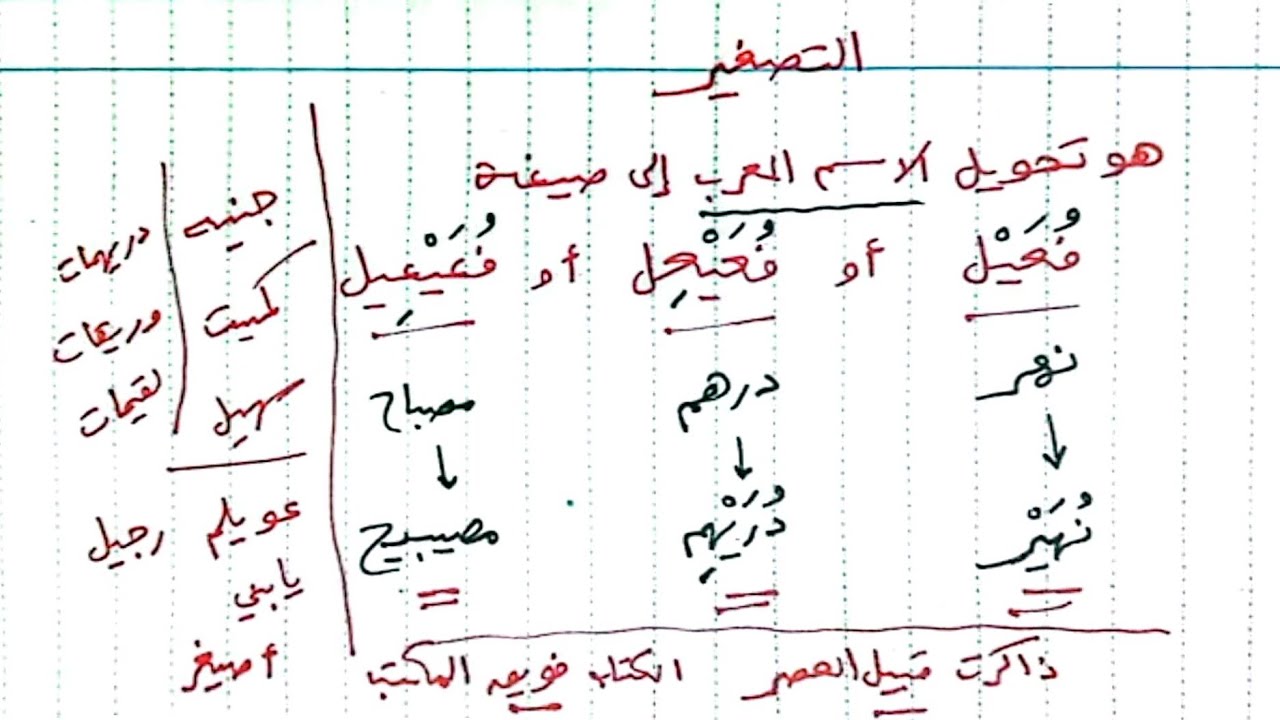 التصغير
هو تحويل الاسم المعرب إلى صيغة
فُعَيْل أو فُعَيْعِل أو فُعَيْعِيل
نهر درهم مصباح
نُهَيْر دُرَيْهِم مصيبيح
جنيه
كميت
سهيل
دريهمات
وريقات
لقيمات
عويلم رجيل
يا بني
أصيغر
ذاكرت قبيل العصر الكتاب فويق المكتب